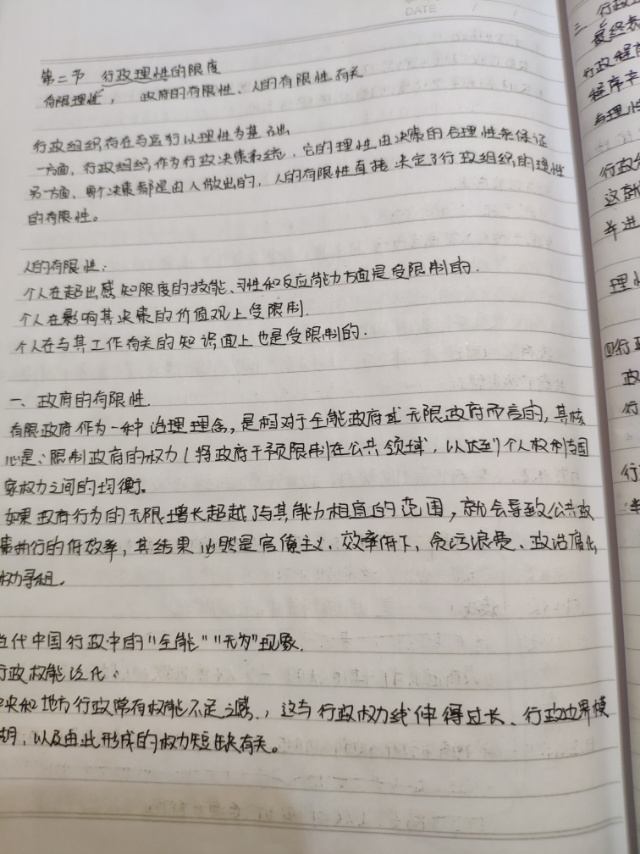 DATE
第二节 行政理性的限度
有限理性， 政府的有限性、人的有限性有关
行政组织存在与运行以理性为基础
一方面，行政组织作为行政决策系统，它的理性由决策的合理性来保证
另一方面，每个决策都是由人做出的，人的有限性直接决定了行政组织的理性
的有限性。
人的有限性：
个人在超出感知限度的技能、习性和反应能力方面是受限制的.
个人在影响其决策的价值观上受限制.
个人在与其工作有关的知识面上也是受限制的.
一、政府的有限性.
有限政府作为一种治理理念，是相对于全能政府或无限政府而言的，其核
心是：限制政府的权力（将政府干预限制在公共领域，以达到个人权利与国
家权力之间的均衡。
如果政府行为的无限增长超越了与其能力相宜的范围，就会导致公共政
策执行的低效率，其结果必然是官僚主义、效率低下、贪污浪费、政治腐化
权力寻租.
当代中国行政中的"全能""无为"现象.
行政权能泛化：
中央和地方行政常有权能不足之嫌，这与行政权力线伸得过长、行政边界模
糊，以及由此形成的权力短缺有关。
三、行政
行政程
程序
与理性
行政
这就
并进
理性
四行政
政
行
行政